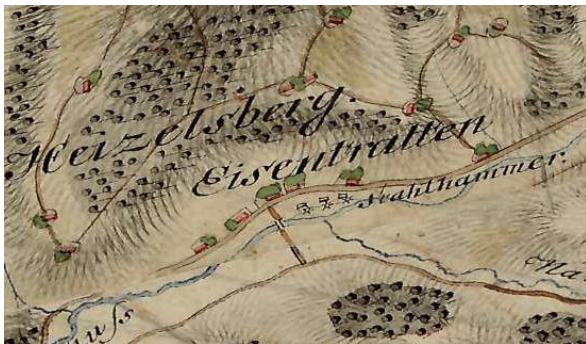 Heizelsberg.
Eisentratten
Stahlhammer.